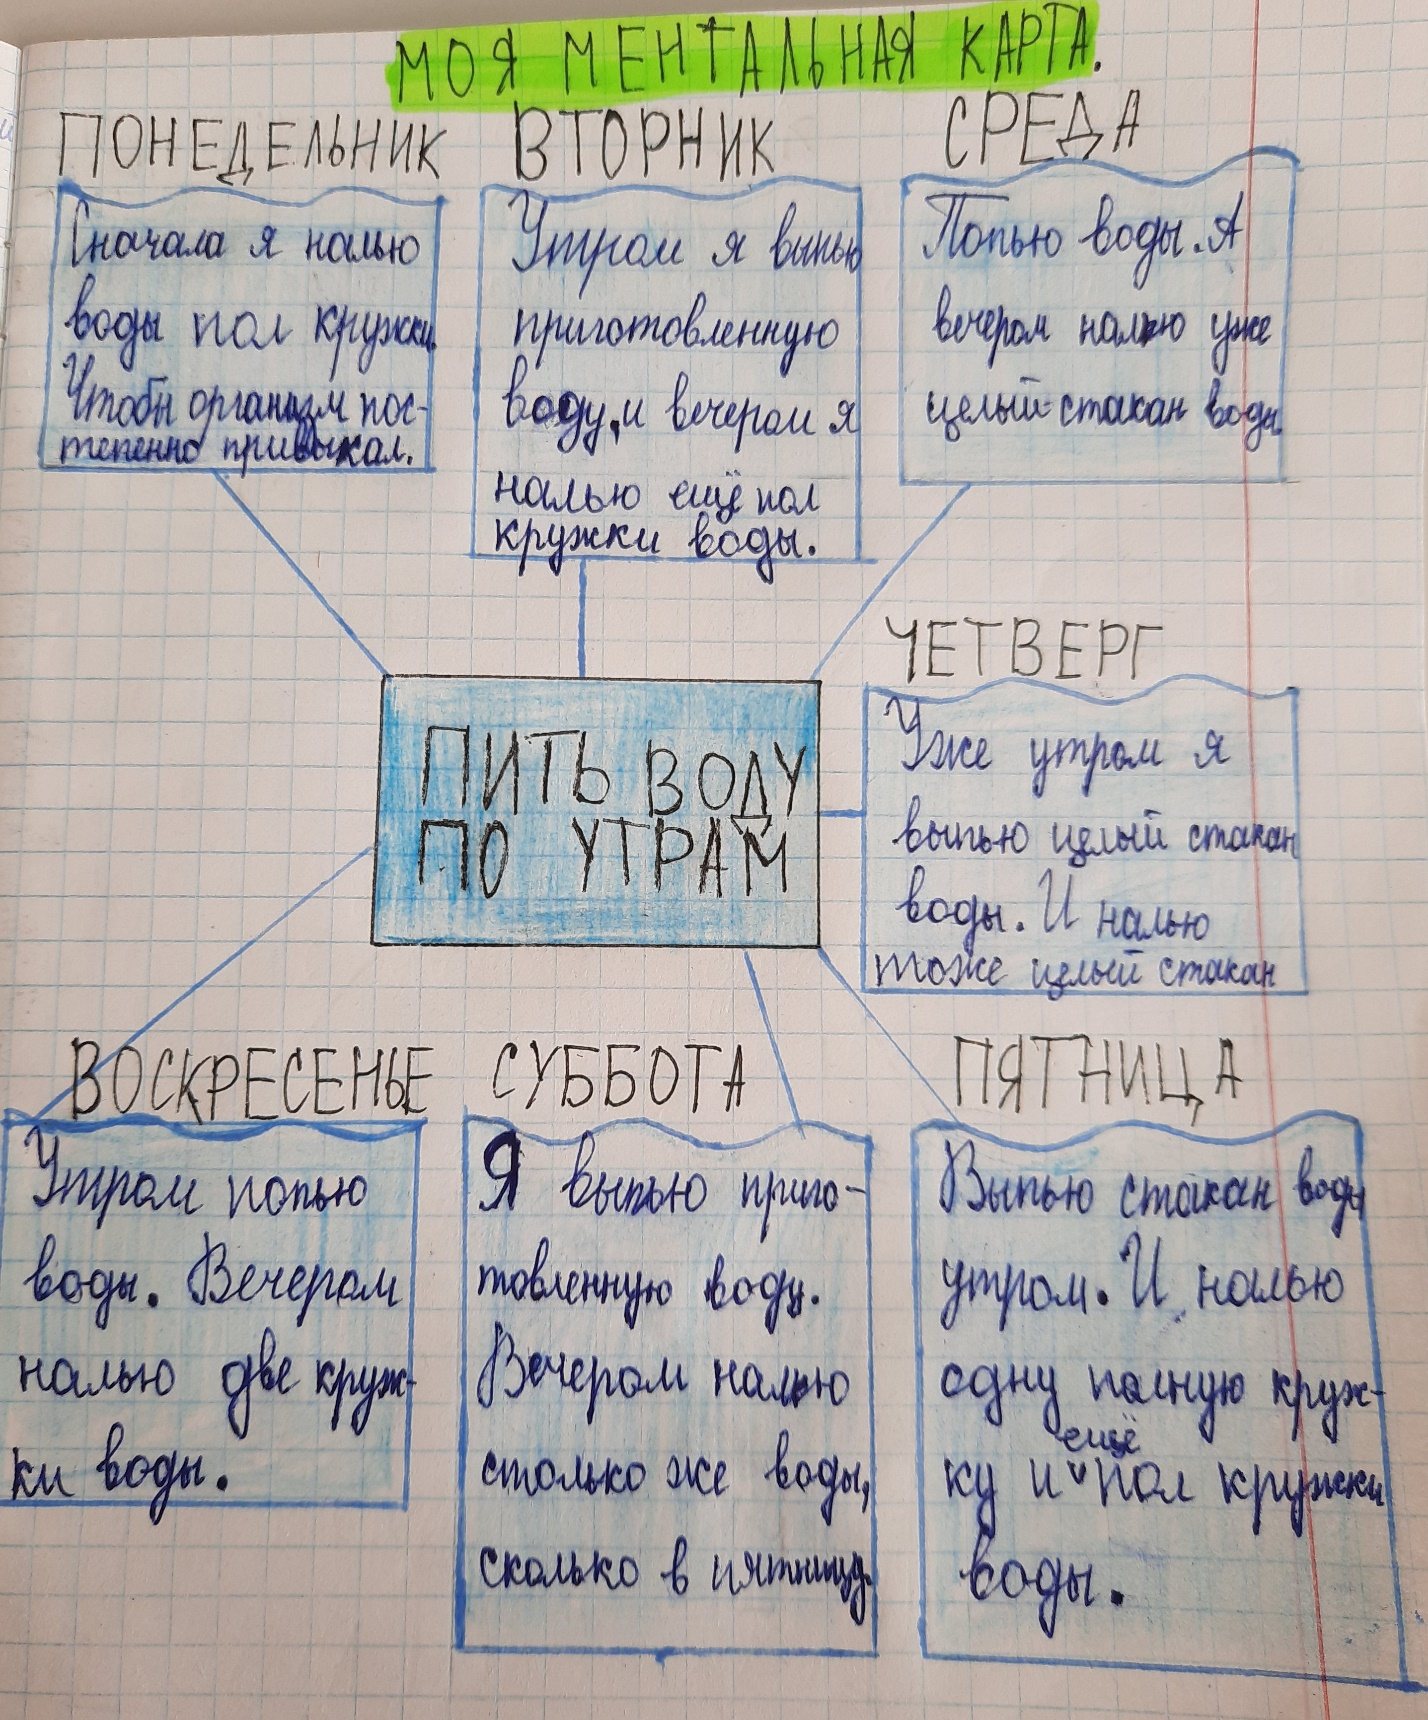 МОЯ МЕНТАЛЬНАЯ КАРТА.
ПОНЕДЕЛЬНИК
Сначала я налью
воды пол кружки.
Чтобы организм пос-
тепенно привыкал.
ВТОРНИК
Утром я выпью
приготовленную
воду, и вечером я
налью ещё пол
кружки воды.
СРЕДА
Попью воды. А
вечером налью уже
целый стакан воды.
ЧЕТВЕРГ
Уже утром я
выпью целый стакан
воды. И налью
тоже целый стакан
ПИТЬ ВОДУ
ПО УТРАМ
ВОСКРЕСЕНЬЕ
Утром попью
воды. Вечером
налью две круж-
ки воды.
СУББОТА
Я выпью приго-
товленную воду.
Вечером налью
столько же воды,
сколько в пятницу.
ПЯТНИЦА
Выпью стакан воды
утром. И налью
одну полную круж-
ку и ещё пол кружки
воды.